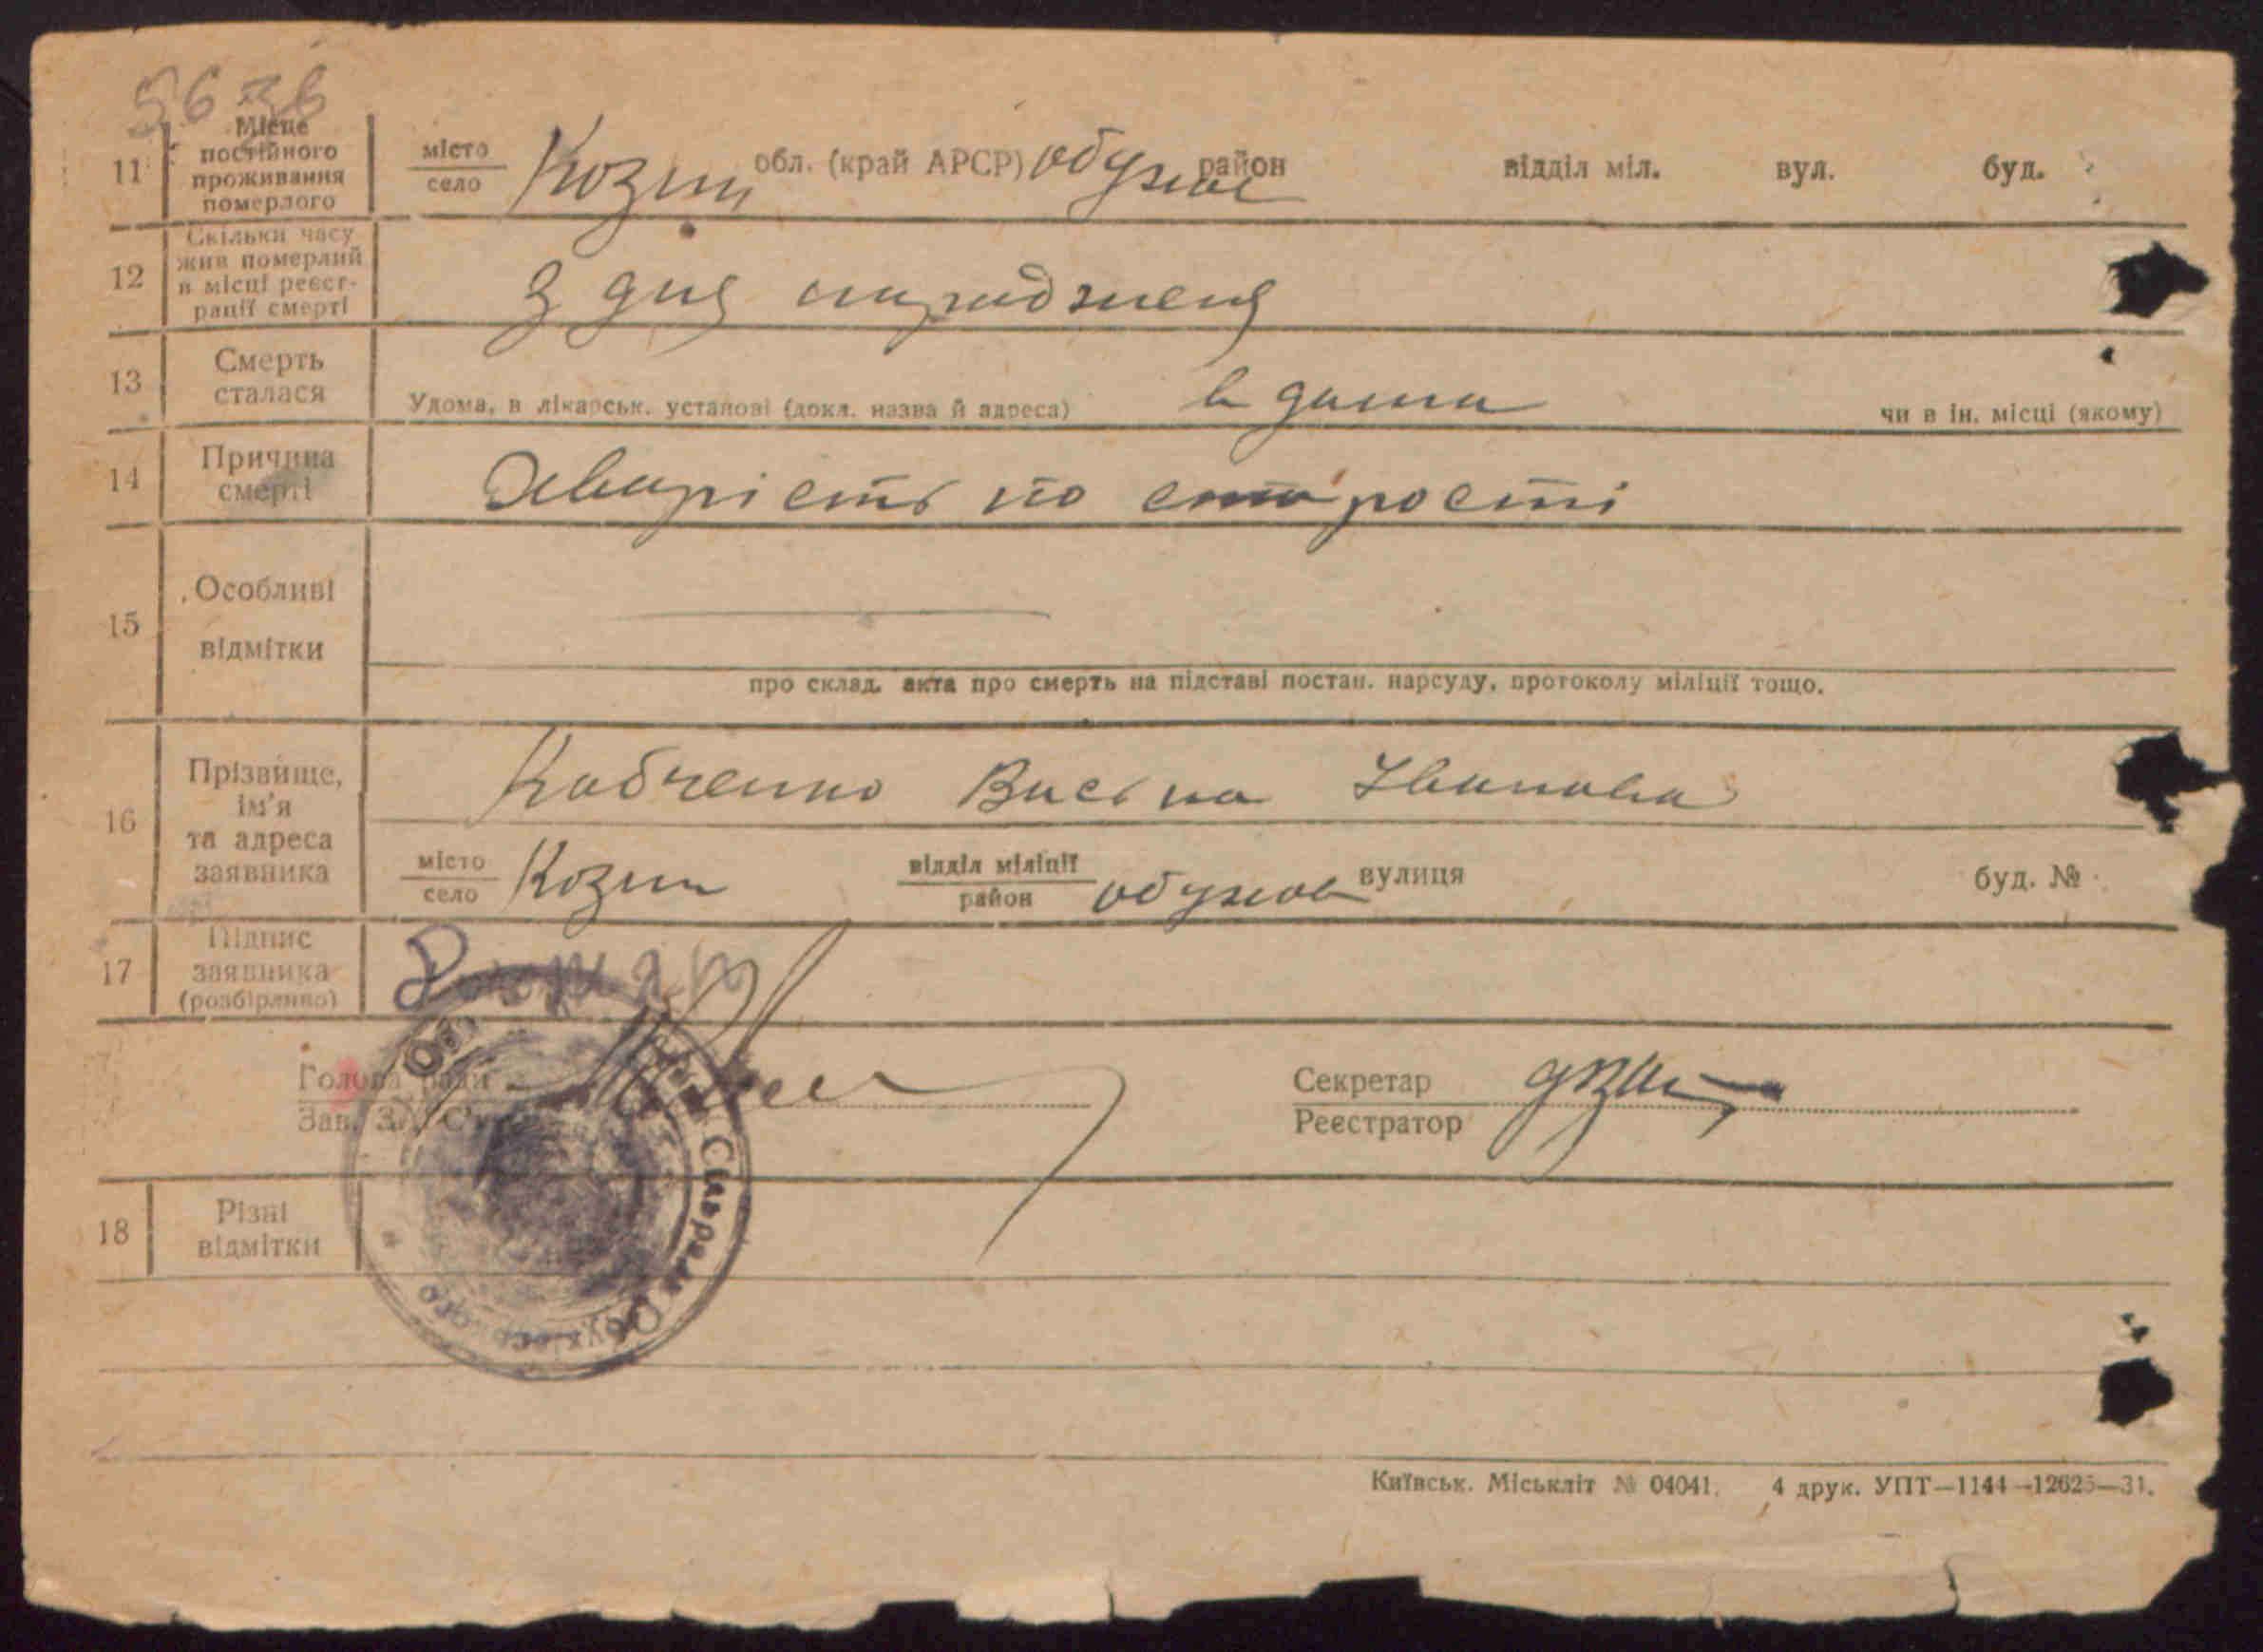 5636
11 Місце постійного проживання померлого місто село Козин обл. (край АРСР) обухов район відділ міл. вул. буд.
12 Скільки часу жив померлий в місці реєстрації смерті З дня народженя
13 Смерть сталася Удома, в лікарськ. установі (докл. назва й адреса) в дома чи в ін. місці (якому)
14 Причина смерті Хварість по старості
15 Особливі відмітки
про склад. акта про смерть на підставі постан. нарсуду, протоколу міліції тощо.
16 Прізвище, ім'я та адреса заявника Кабченко
місто село Козин відділ міліції район обухов вулиця буд. №
17 Підпис заявника (розбірливо)
Голова ради
Зав. ЗАГС'у
Секретар
Реєстратор
18 Різні відмітки
Київськ. Міськліт № 04041. 4 друк. УПТ—1144—12625—31.